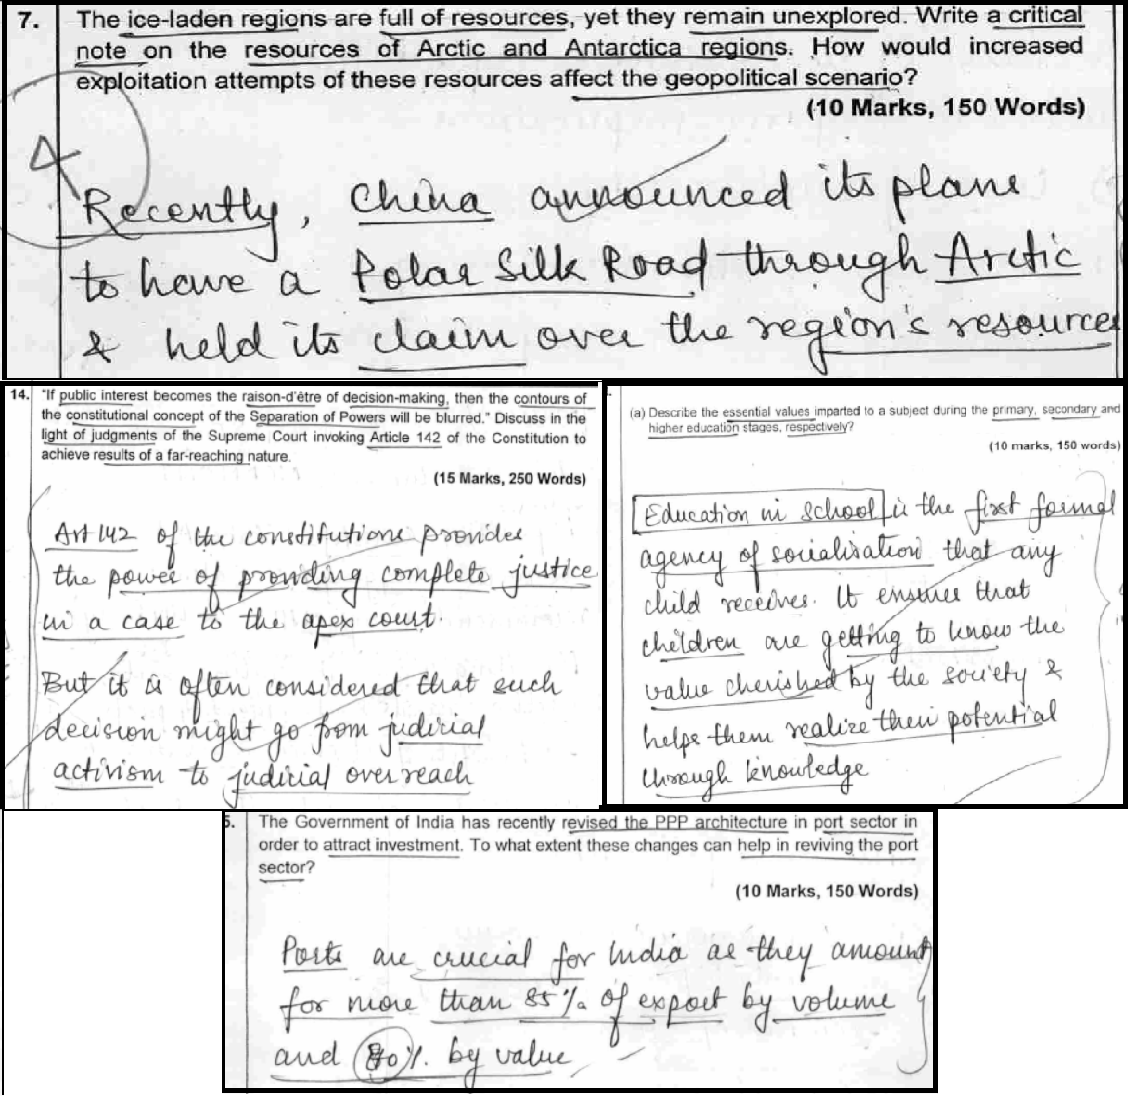 7. The ice-laden regions are full of resources, yet they remain unexplored. Write a critical
note on the resources of Arctic and Antarctica regions. How would increased
exploitation attempts of these resources affect the geopolitical scenario?
(10 Marks, 150 Words)
4
Recently, China announced its plans
to have a Polar Silk Road through Arctic
& held its claim over the region's resources
14. "If public interest becomes the raison-d'être of decision-making, then the contours of
the constitutional concept of the Separation of Powers will be blurred." Discuss in the
light of judgments of the Supreme Court invoking Article 142 of the Constitution to
achieve results of a far-reaching nature.
(15 Marks, 250 Words)
Art 142 of the constitutions provides
the power of providing complete justice
in a case to the apex court.
But it is often considered that such
decision might go from judicial
activism to judicial overreach
(a) Describe the essential values imparted to a subject during the primary, secondary and
higher education stages, respectively?
(10 marks, 150 words)
Education in school is the first formal
agency of socialisation that any
child receives. It ensures that
children are getting to know the
value cherished by the society &
helps them realize their potential
through knowledge
5. The Government of India has recently revised the PPP architecture in port sector in
order to attract investment. To what extent these changes can help in reviving the port
sector?
(10 Marks, 150 Words)
Ports are crucial for India as they amount
for more than 85% of export by volume
and 70% by value